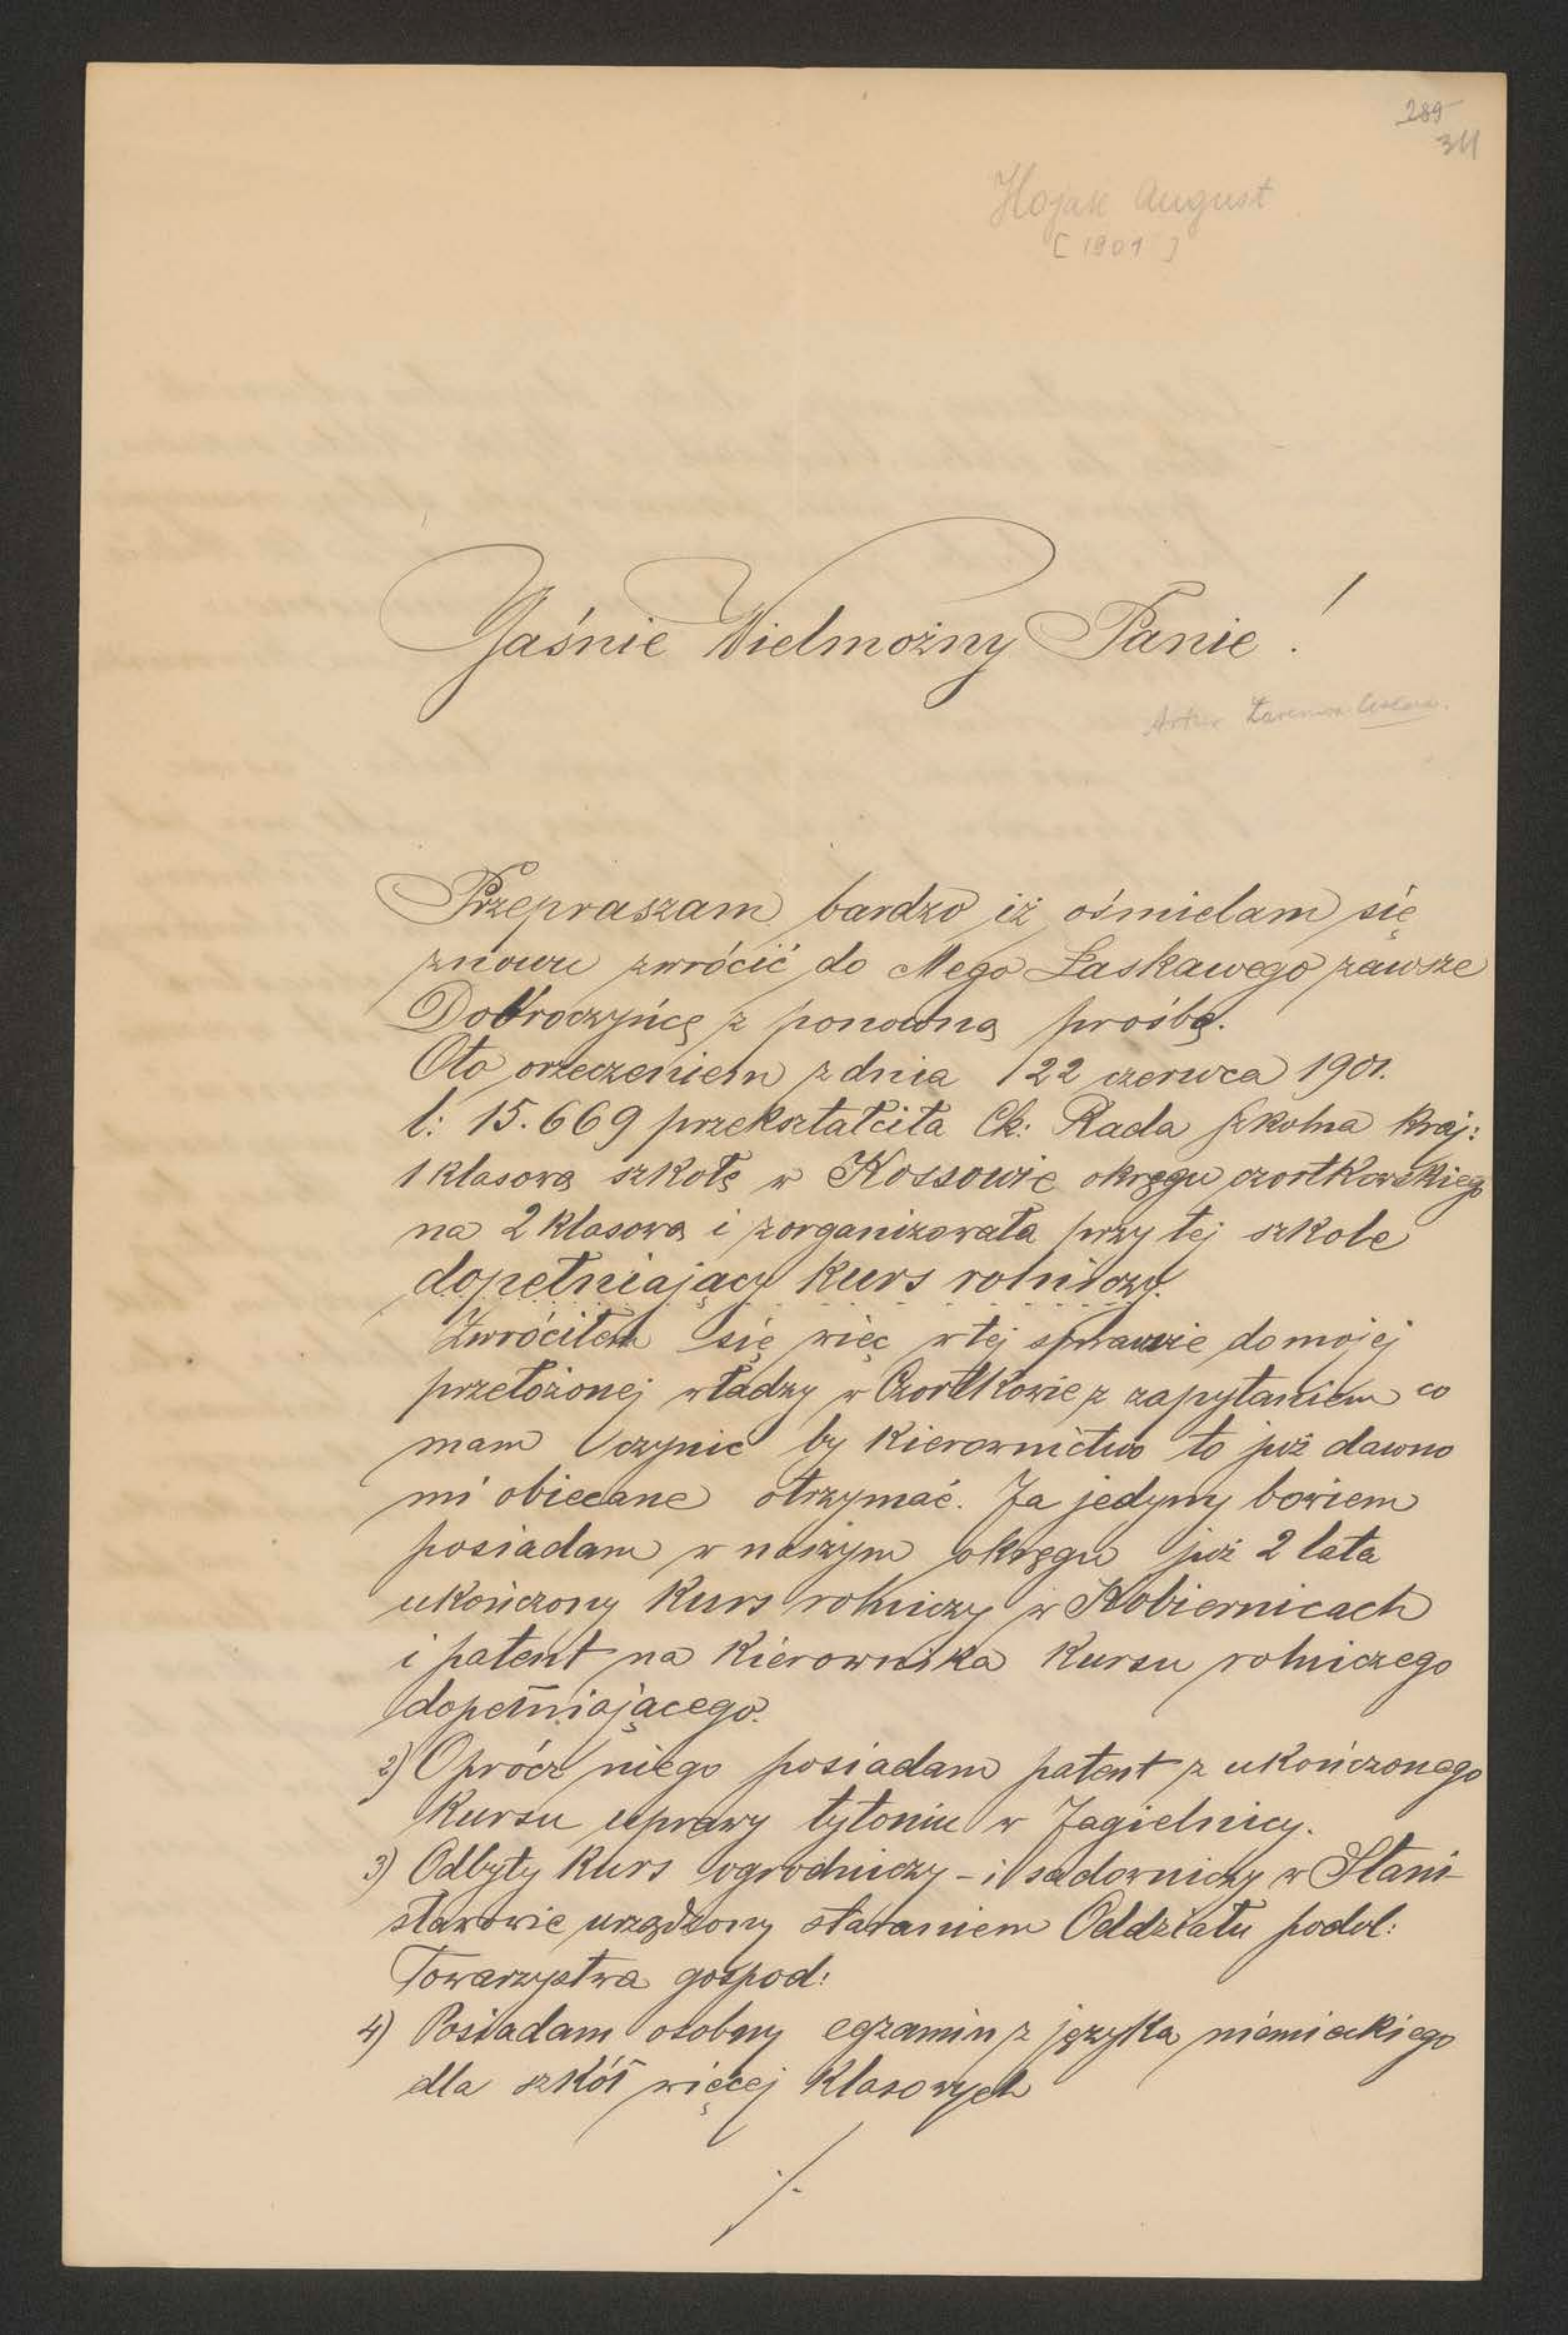 289
311
Hojak August
[1901]
Jaśnie Wielmożny Panie!
Artur
Przepraszam bardzo iż ośmielam się
znowu zwrócić do Mego Łaskawego zawsze
Dobroczyńcę z ponowną prośbą.
Oto orzeczeniem z dnia 22 czerwca 1901.
l: 15.669 przekształciła Ck: Rada szkolna kraj:
1 klasową szkołę w Kossowie okręgu czortkowskiego
na 2 klasową i zorganizowała przy tej szkole
dopełniający kurs rolniczy.
Zwróciłem się więc w tej sprawie do mojej
przełożonej władzy w Czortkowie z zapytaniem co
mam uczynić by kierownictwo to już dawno
mi obiecane otrzymać. Ja jedyny bowiem
posiadam w naszym okręgu już 2 lata
ukończony kurs rolniczy w Kobiernicach
i patent na kierownika kursu rolniczego
dopełniającego.
2) Oprócz niego posiadam patent z ukończonego
kursu uprawy tytoniu w Jagielnicy.
3) Odbyty kurs ogrodniczy - i sadowniczy w Stani-
sławowie urządzony staraniem Oddziału podol:
Towarzystwa gospod:
4) Posiadam osobny egzamin z języka niemieckiego
dla szkół więcej klasowych
./.